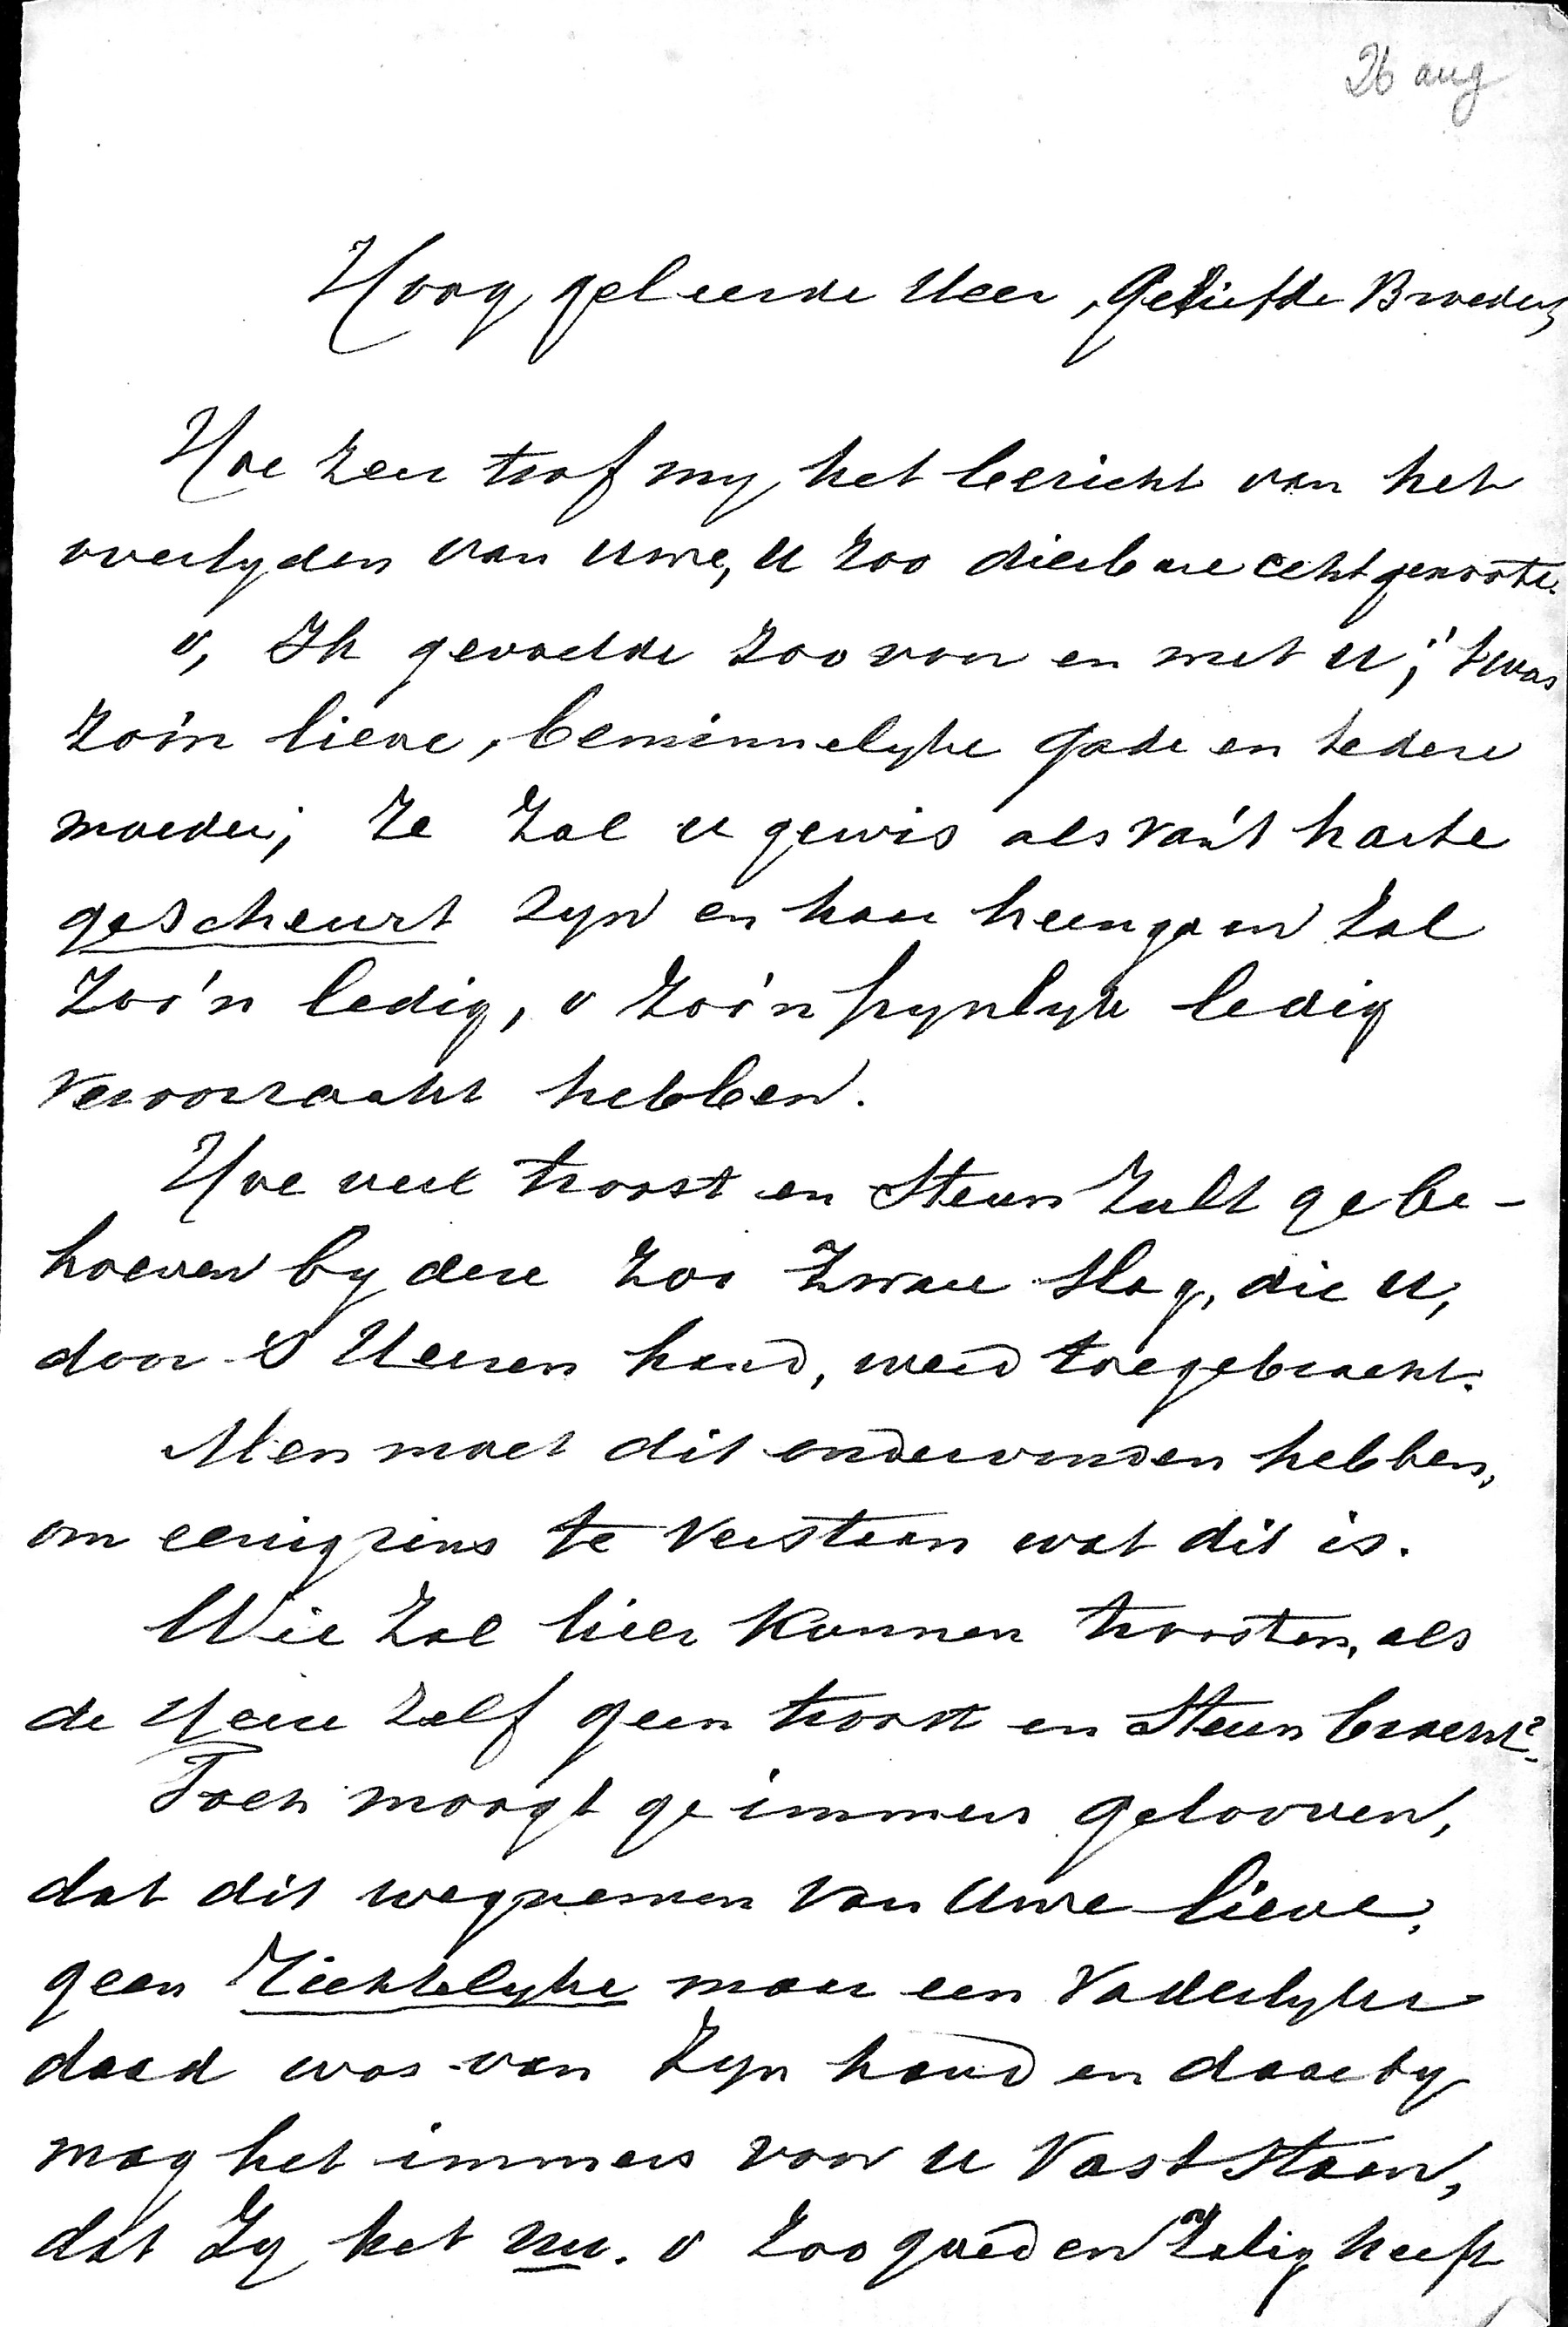 26 aug
Hoog geleerde Heer, Geliefde Broeder,
Hoe zeer trof my het bericht van het
overlyden van uwe, u zoo dierbare echtgenoote.
o, Ik gevoelde zoo voor en met u; 't was
zoo'n lieve, beminnelyke gade en tedere
moeder; Ze zal u gewis als van 't harte
gescheurt zyn en haar heengaan zal
zoo'n ledig, o zoo'n pynlyk ledig
veroorzaakt hebben.
Hoe veel troost en steun zult ge be-
hoeven by deze zoo zware slag, die u,
door 's Heeren hand, werd toegebracht.
Men moet dit ondervonden hebben,
om eenigzins te verstaan wat dit is.
Wie zal hier kunnen troosten, als
de Heere zelf geen troost en steun bracht?
Toch moogt ge immers gelooven,
dat dit wegnemen van Uwe lieve,
geen Richtelyke maar een Vaderlyke
daad was van Zyn hand en daarby
mag het immers voor u vast staan,
dat Zy het nu. o zoo goed en zalig heeft